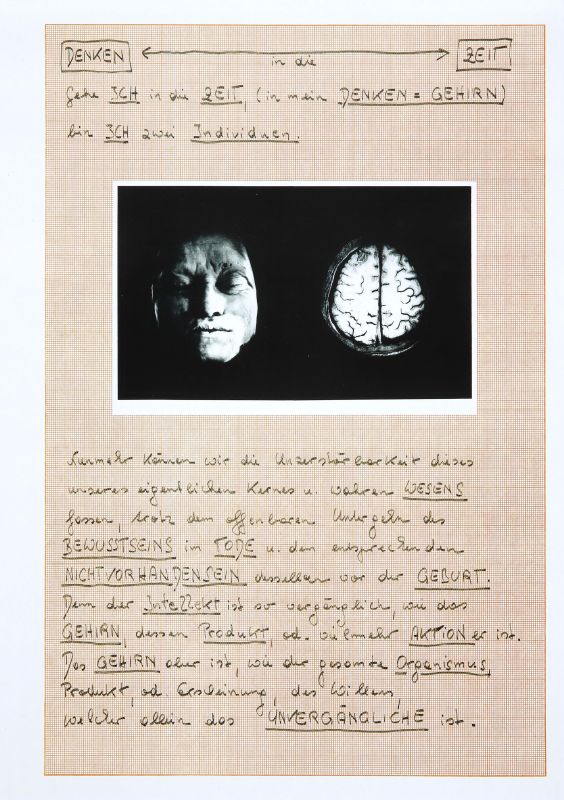 DENKEN in die ZEIT
Gehe ICH in die ZEIT, (in mein DENKEN = GEHIRN)
bin ICH zwei Individuen.
Nunmehr können wir die Unzerstörbarkeit dieses
unseres eigentlichen Kernes u. wahren WESENS
fassen, trotz dem offenbaren Untergehn des
BEWUSSTSEINS im TODE u. dem entsprechenden
NICHTVORHANDENSEIN desselben vor der GEBURT.
Denn der Intellekt ist so vergänglich, wie das
GEHIRN, dessen Produkt, od. vielmehr AKTION er ist.
Das GEHIRN aber ist, wie der gesamte Organismus,
Produkt, od. Erscheinung, des Willens,
welcher allein das UNVERGÄNGLICHE ist.